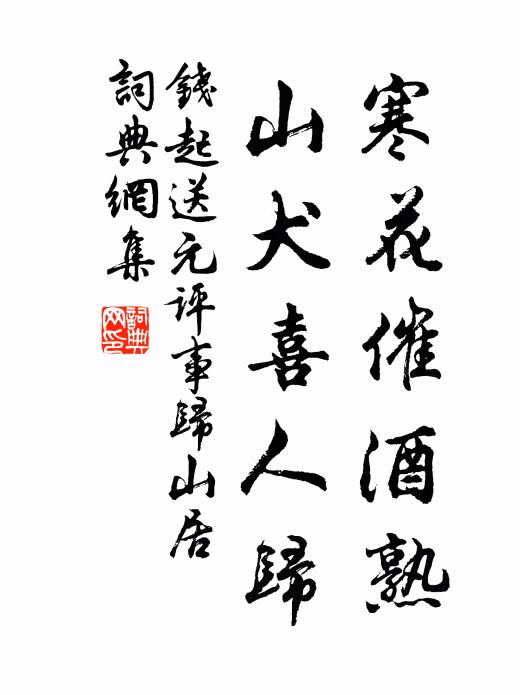 寒花催酒熟
山犬喜人歸
錢起送元評事歸山居
詞典網集
詞典网印